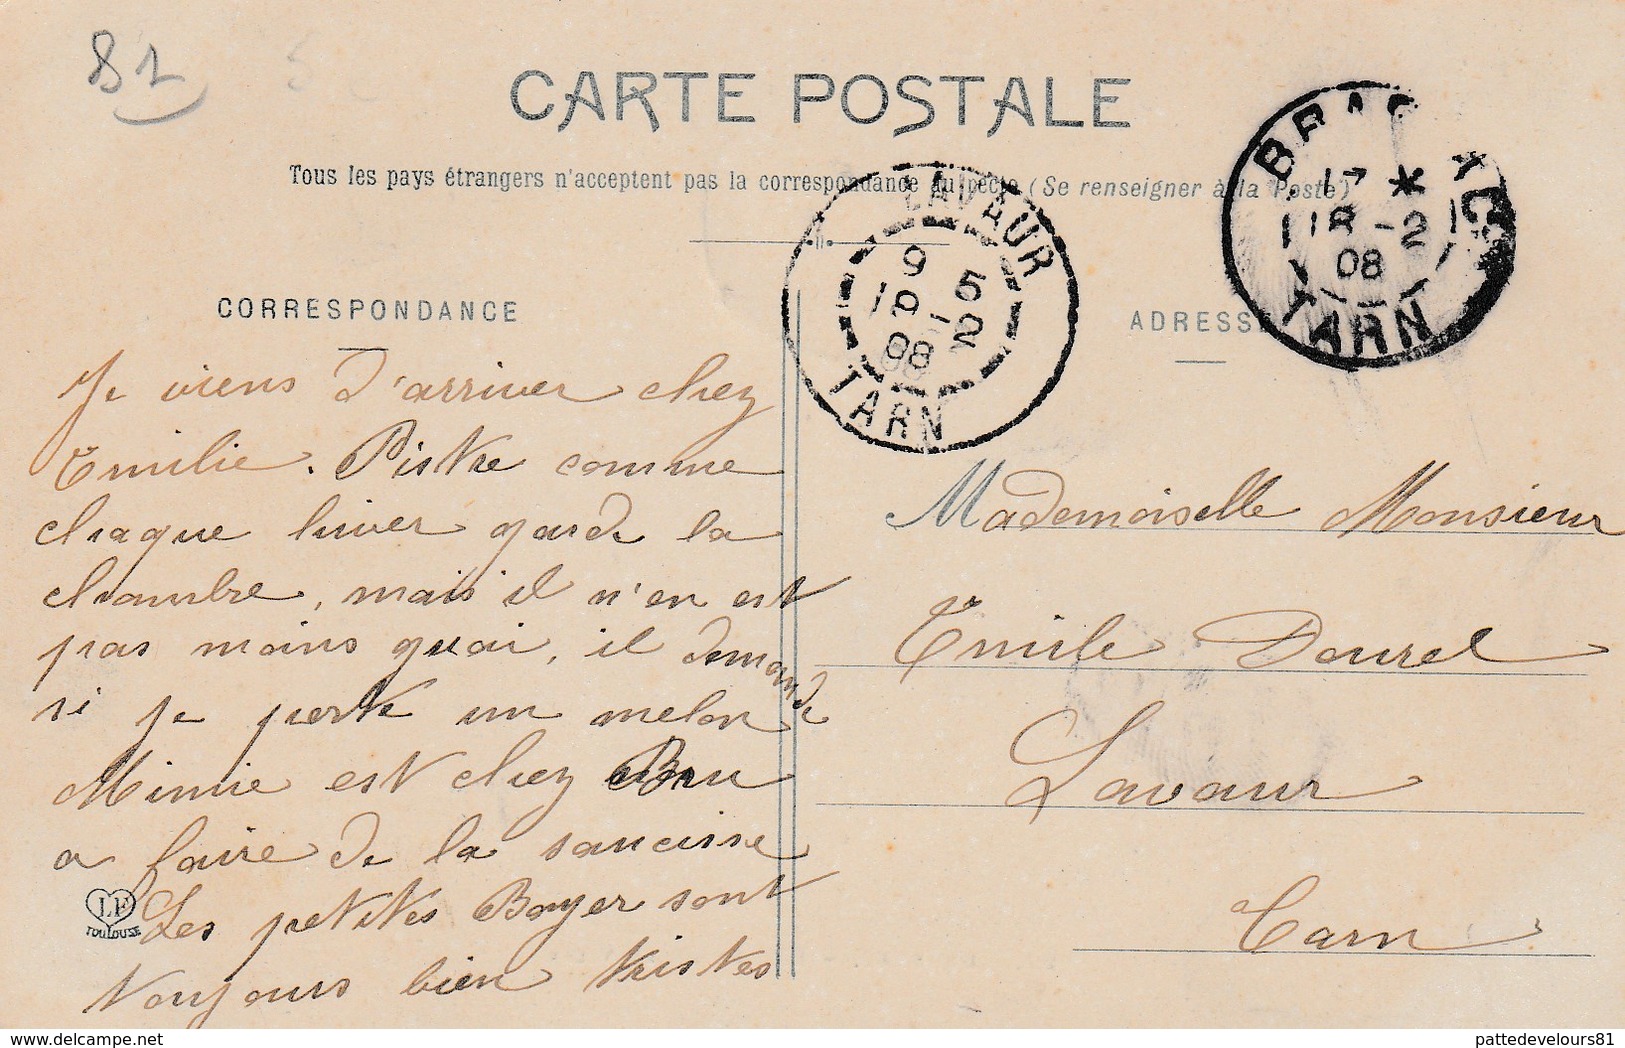 81
CARTE POSTALE
Tous les pays étrangers n'acceptent pas la correspondance au recto (Se renseigner à la Poste)
LAVAUR
9 5
18 - 2
08
TARN
17 *
18 - 2
08
TARN
CORRESPONDANCE
Je viens d'arriver chez
Emilie. Pistre comme
chaque hiver garde la
chambre, mais il n'en est
pas moins guai, il demande
si je porte un melon
Minie est chez Bru
a faire de la saucisse
Les petites Boyer sont
toujours bien tristes
LF
TOULOUSE
ADRESSE
Mademoiselle Monsieur
Emile Dourel
Lavaur
Tarn
delcampe.net
pattedevelours81